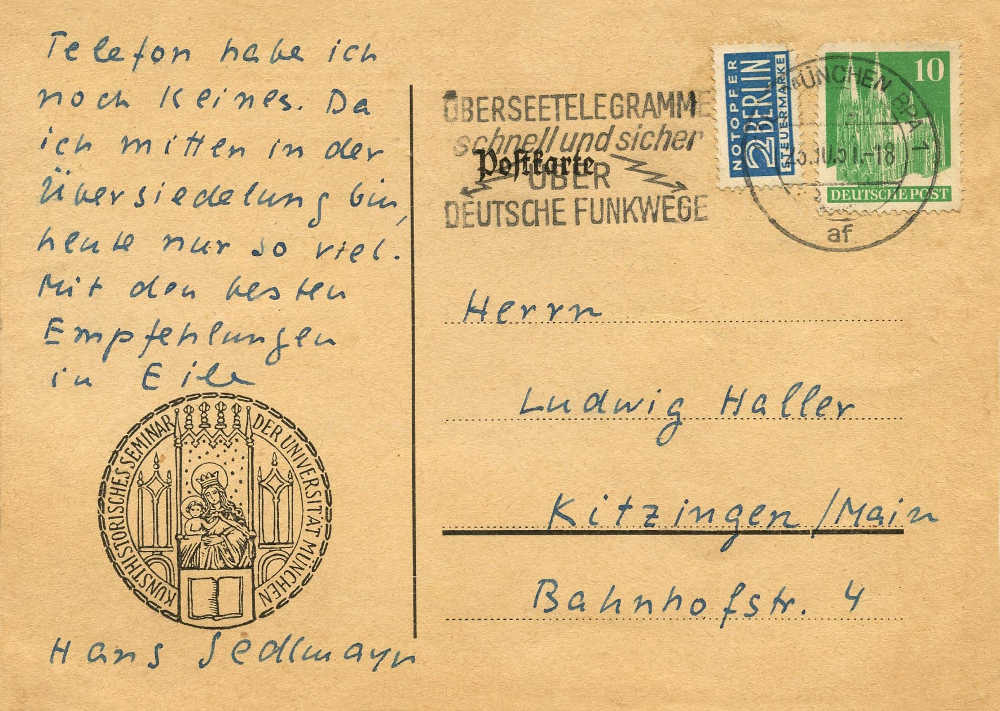 Telefon habe ich
noch keines. Da
ich mitten in der
Übersiedelung bin,
heute nur so viel.
Mit den besten
Empfehlungen
in Eile
KUNSTHISTORISCHES SEMINAR DER UNIVERSITÄT MÜNCHEN
Hans Sedlmayr
ÜBERSEETELEGRAMME
schnell und sicher
Postkarte
ÜBER
DEUTSCHE FUNKWEGE
NOTOPFER
2 BERLIN
STEUERMARKE
10
DEUTSCHE POST
MÜNCHEN BPA 1
23.10.51.-18
af
Herrn
Ludwig Haller
Kitzingen/Main
Bahnhofstr. 4